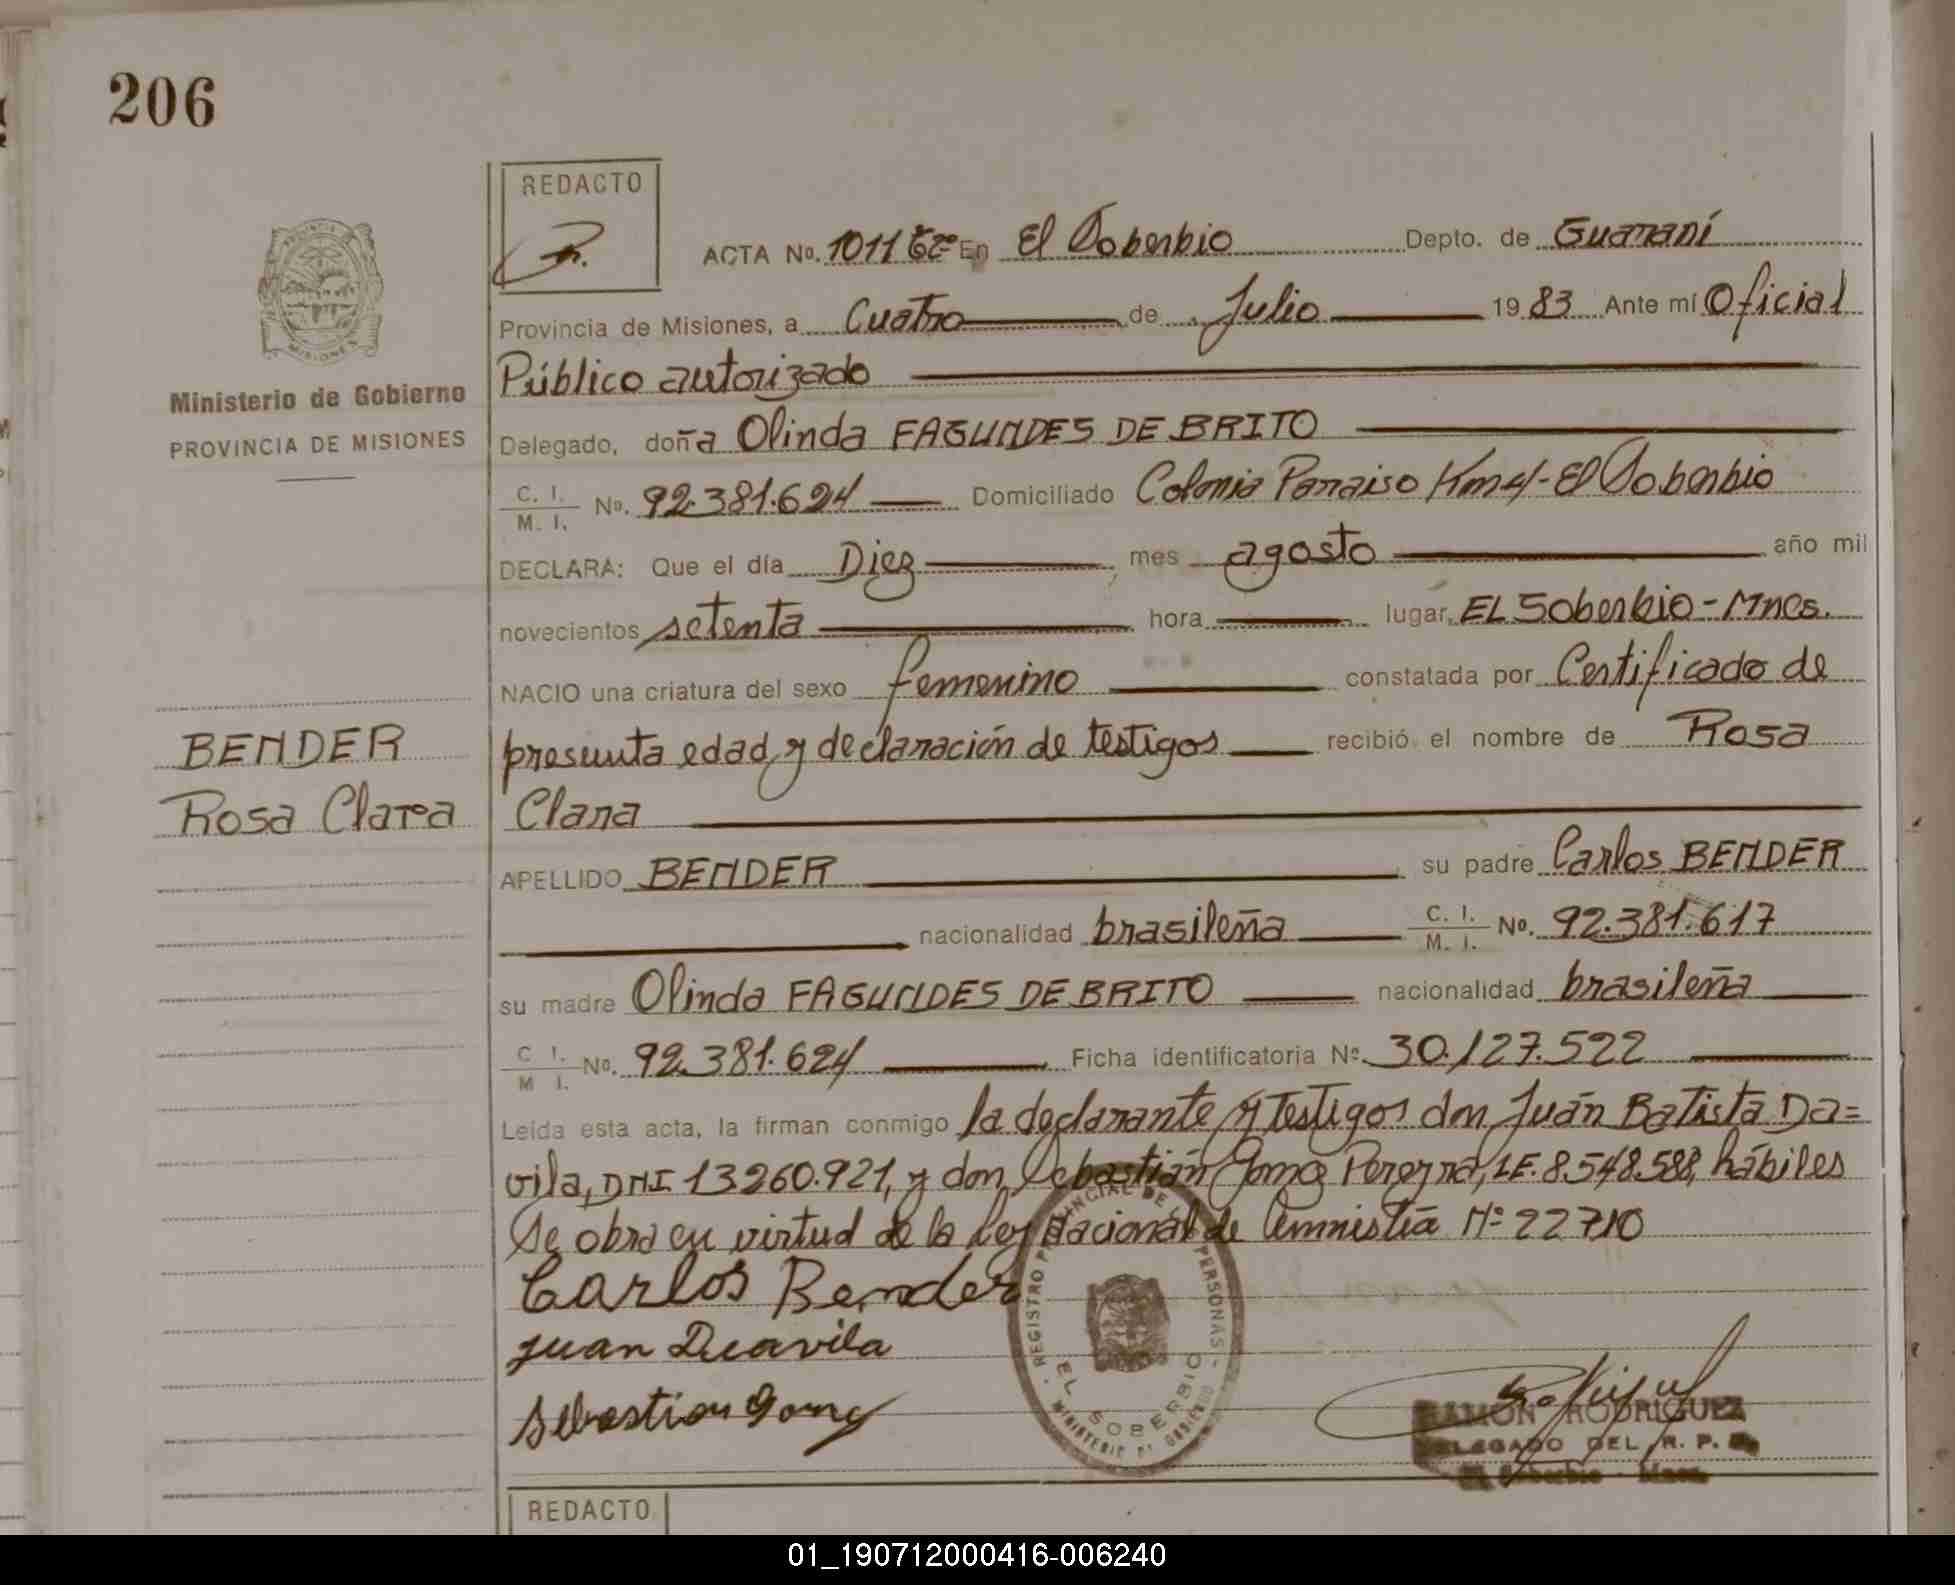 206
REDACTO
ACTA No. 1011 En El Soberbio Depto. de Guaraní
Provincia de Misiones, a Cuatro de Julio 1983 Ante mí Oficial
Público autorizado
Delegado, doña Olinda FAGUNDES DE BRITO
C. I. / M. I. No. 92.381.624 Domiciliado Colonia Paraiso Km 4 - El Soberbio
DECLARA: Que el día Diez mes agosto año mil
novecientos setenta hora lugar EL Soberbio - Mnes.
NACIO una criatura del sexo femenino constatada por Certificado de
presunta edad y declaración de testigos recibió el nombre de Rosa
Clara
APELLIDO BENDER su padre Carlos BENDER
nacionalidad brasileña C. I. / M. I. No. 92.381.617
su madre Olinda FAGUNDES DE BRITO nacionalidad brasileña
C I. / M I. No. 92.381.624 Ficha identificatoria No. 30.127.522
Leída esta acta, la firman conmigo la declarante y testigos don Juán Batista Da=
vila, DNI 13260.921, y don Sebastián Gomez Pereyra, LE. 8.548.588, hábiles
Se obra en virtud de la Ley Nacional de Amnistía Nº 22710
Carlos Bender
Juan Deavila
Sebastian Gomez
REGISTRO PROVINCIAL DE PERSONAS
EL SOBERBIO
MINISTERIO DE GOBIERNO
RAMON RODRIGUEZ
DELEGADO DEL R. P. P.
El Soberbio - Mnes.
PROVINCIA DE
MISIONES
Ministerio de Gobierno
PROVINCIA DE MISIONES
BENDER
Rosa Clara
REDACTO
01_190712000416-006240